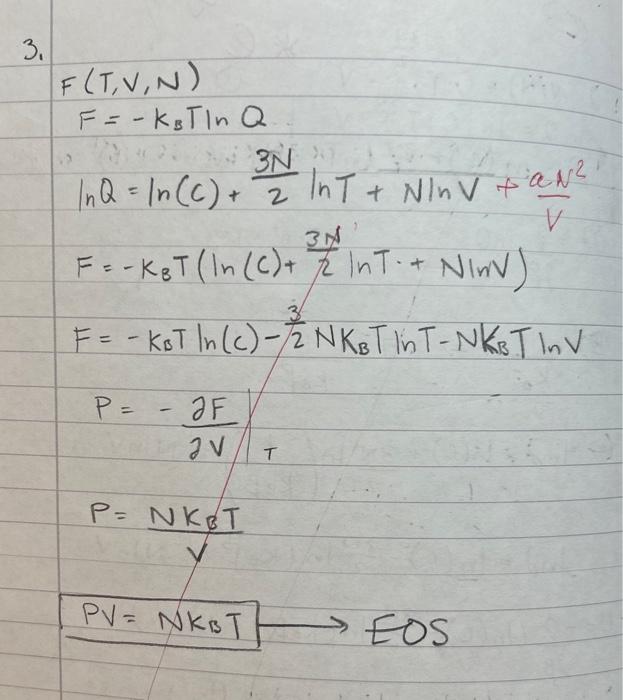 3.
F(T,V,N)
F = - K_B T ln Q
ln Q = ln(C) + 3N/2 ln T + N ln V + aN²/V
F = - K_B T (ln(C) + 3N/2 ln T + N ln V)
F = - K_B T ln(C) - 3/2 N K_B T ln T - N K_B T ln V
P = - ∂F/∂V |_T
P = N K_B T / V
PV = N K_B T → EOS